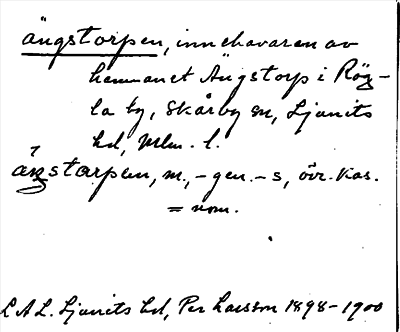 ängstorpen, innehavaren av
hemmanet Ängstorp i Rög-
la by, Skårby sn, Ljunits
hd, Mlm. l.
äŋstorpen, m., - gen. - s, övr. kas.
= nom.
L A L. Ljunits hd, Per Larsson 1898-1900